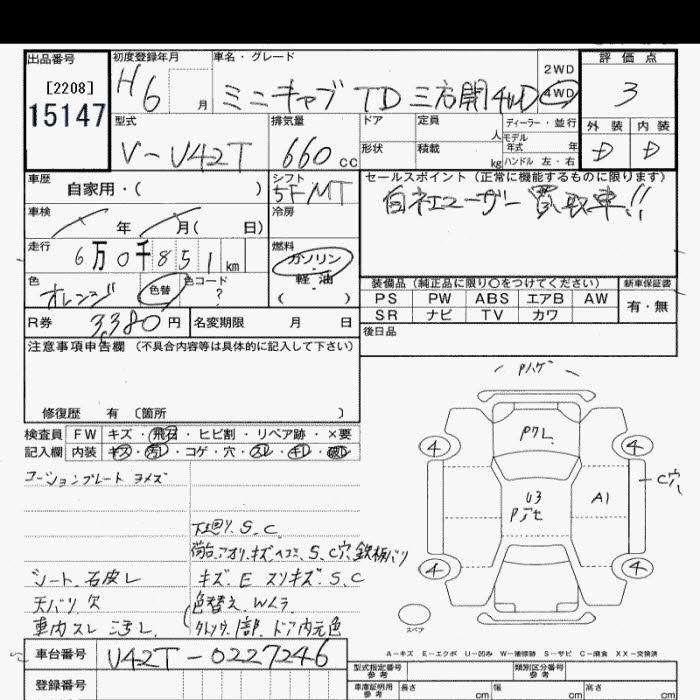 出品番号
[2208]
15147
初度登録年月
H6 月
車名・グレード
ミニキャブ TD 三方開 4WD
2WD
4WD
評価点
3
外装 内装
D D
型式
V-U42T
排気量
660 cc
ドア
定員
人
形状
積載
kg
ディーラー・並行
モデル
年式 年
ハンドル 左・右
車歴
自家用・( )
シフト
5F MT
セールスポイント(正常に機能するものに限ります)
自社ユーザー買取車!!
車検
年 月( 日)
冷房
走行
6万0千851km
燃料
ガソリン
・
軽油
( )
色
オレンジ
色替
色コード
?
装備品(純正品に限り〇をつけてください)
新車保証書
PS PW ABS エアB AW
有・無
SR ナビ TV カワ
R券 3,380円
名変期限 月 日
後日品
注意事項申告欄(不具合内容等は具体的に記入して下さい)
修復歴 有 〔箇所 〕
検査員 FW キズ・飛石・ヒビ割・リペア跡・×要
記入欄 内装 キズ・汚レ・コゲ・穴・スレ・キレ・破レ
コーションプレート ヨメズ
下廻リ S.C
荷台、アオリ、キズヘコミ、S.C穴、鉄板バリ
シート、石皮レ
キズ.E スリキズ.S.C
天バリ欠
色替え.Wムラ
車内スレ ヨゴレ
クレンザ 1部、ドア内元色
Pハゲ
Pクレ
4
4
C穴
U3
Pボセ
A1
4
4
スペア
A-キズ E-エクボ U-凹み W-補修跡 S-サビ C-腐食 XX-交換済
車台番号
U42T-0227246
登録番号
型式指定番号
参考
類別区分番号
参考
車庫証明用
参考
長さ cm
幅 cm
高さ cm